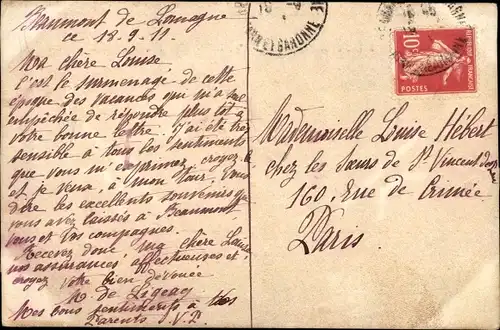 Beaumont de Lomagne
ce 18.9.11.
Ma chère Louise
C'est le surmenage de cette
époque des vacances qui m'a
empêchée de répondre plus tôt à
votre bonne lettre. J'ai été très
sensible à tous les sentiments
que vous m'exprimez, croyez le
et je veux, à mon tour, vous
dire les excellents souvenirs que
vous avez laissés à Beaumont
vous et vos compagnes.
Recevez donc, ma chère Louise
mes assurances affectueuses et
croyez votre bien dévouée
M. de
Mes bons sentiments à vos
Parents S.V.P.
ET GARONNE
10c
REPUBLIQUE FRANÇAISE
POSTES
Mademoiselle Louise Hébert
chez les Sœurs de St Vincent de
160, Rue de Crimée
Paris